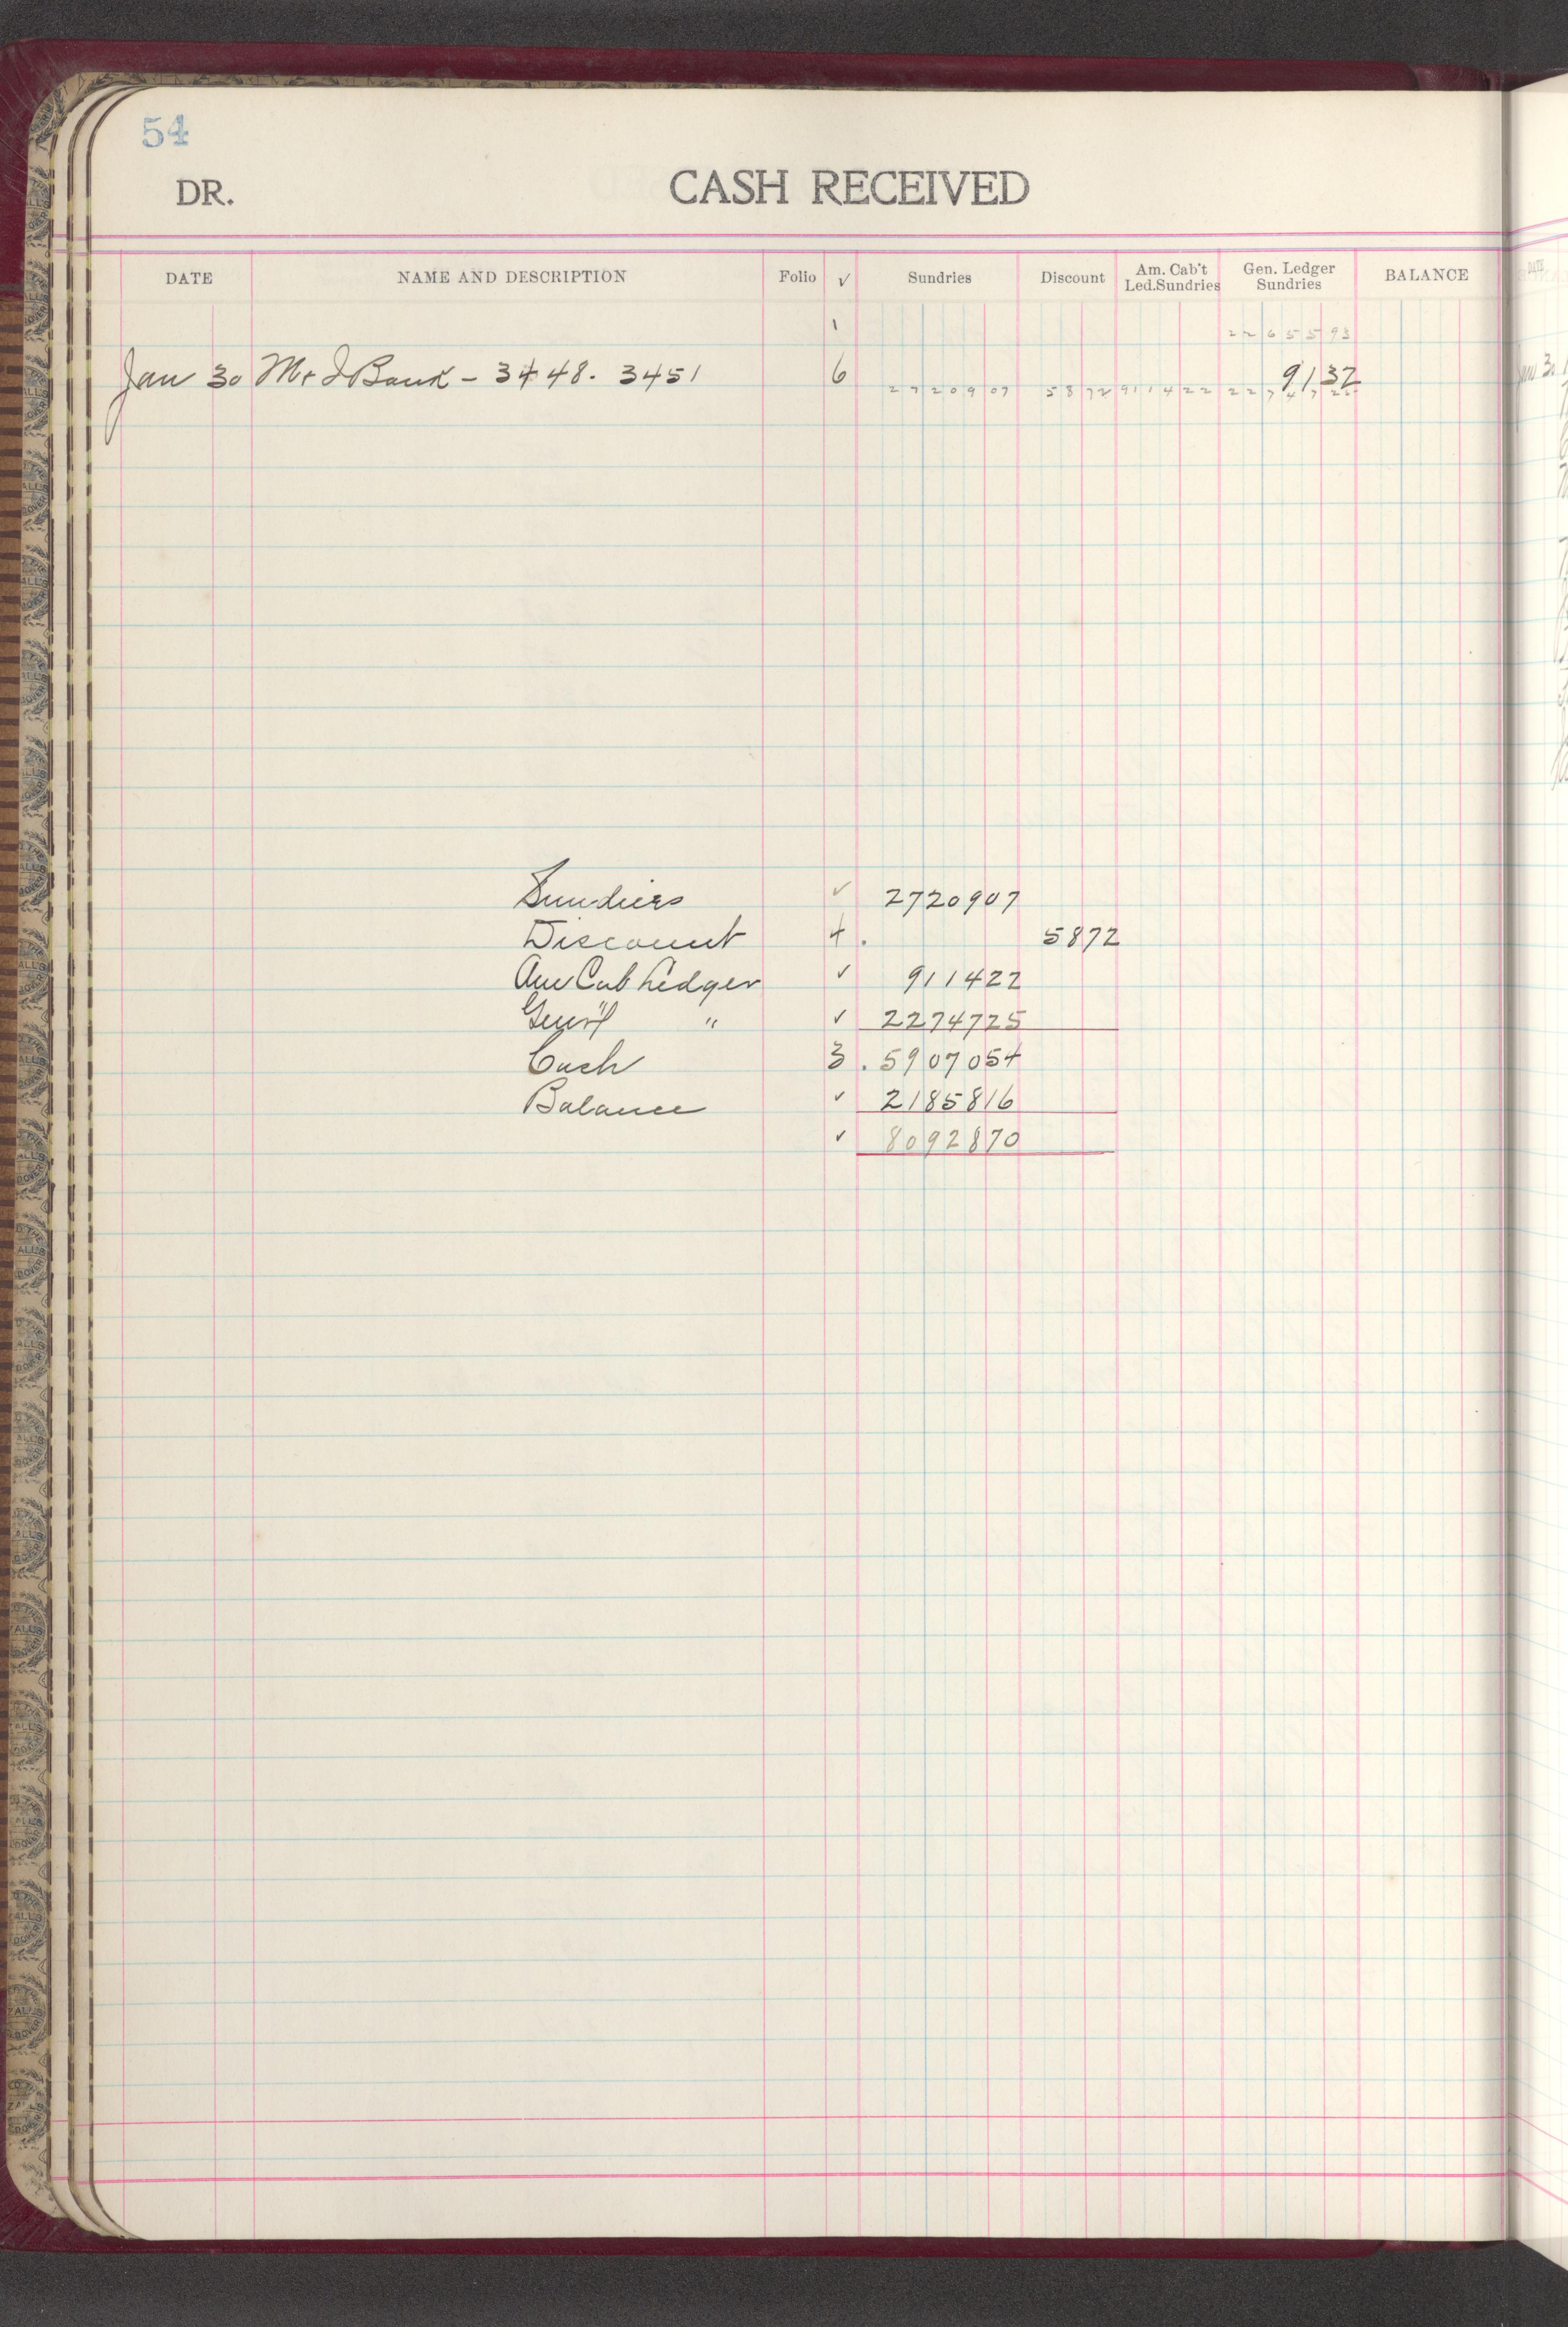 54
DR. CASH RECEIVED
DATE NAME AND DESCRIPTION Folio √ Sundries Discount Am. Cab't Led.Sundries Gen. Ledger Sundries BALANCE
1 2265593
Jan 30 M & I Bank - 3448. 3451 6 9132
2720907 5872 911422 2274725
Sundries ✓ 2720907
Discount 4. 5872
Am Cab Ledger ✓ 911422
Gen'l " ✓ 2274725
Cash 3. 5907054
Balance ✓ 2185816
✓ 8092870